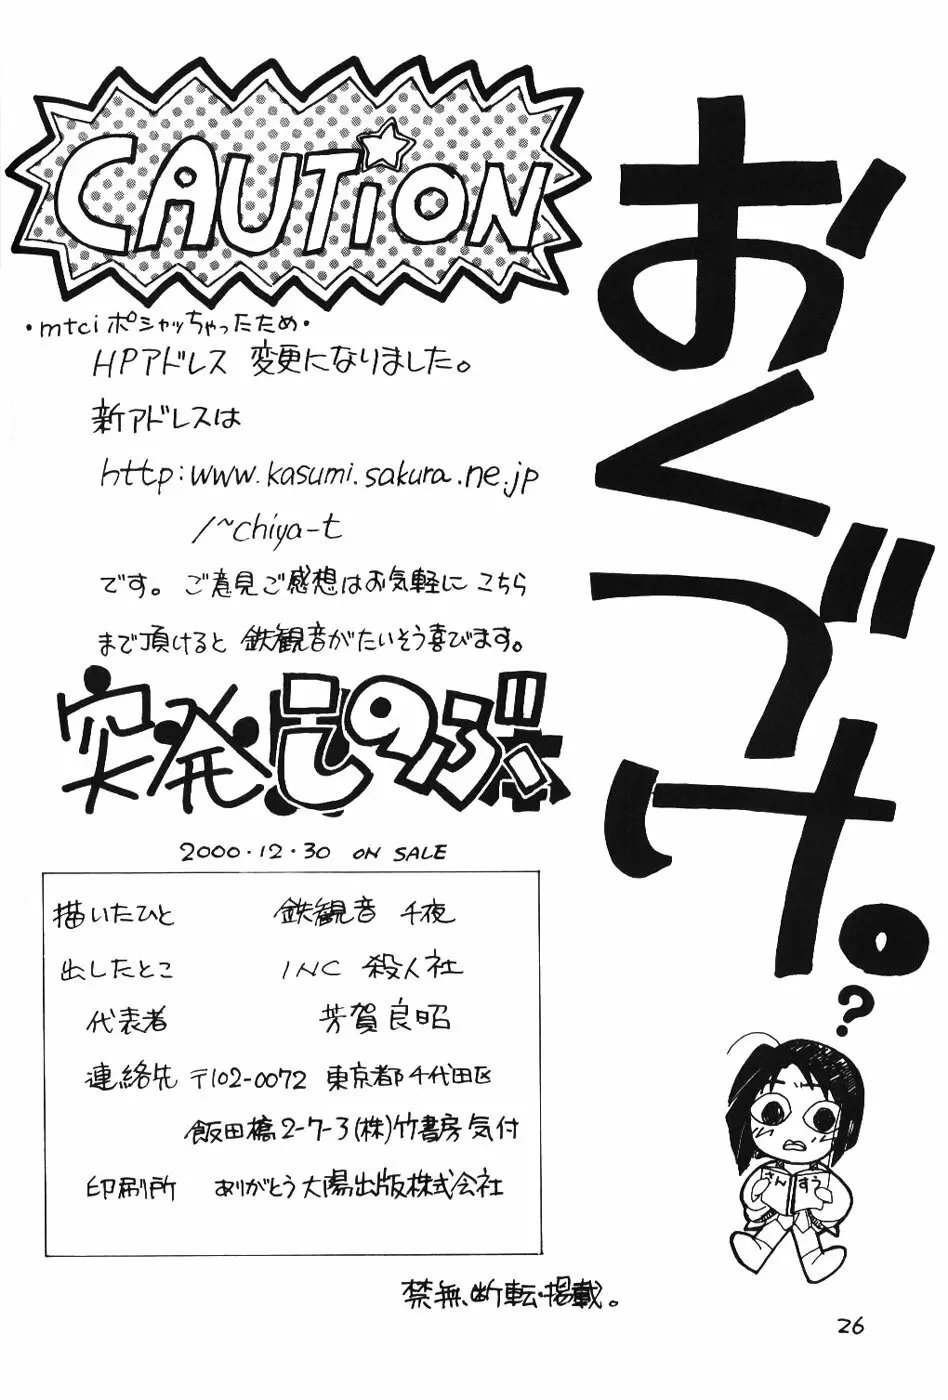 おくづけ。
CAUTiON
・mtciポシャッちゃったため・
HPアドレス 変更になりました。
新アドレスは
http:www.kasumi.sakura.ne.jp
/~chiya-t
です。ご意見ご感想はお気軽にこちら
まで頂けると 鉄観音がたいそう喜びます。
突発しのぶ本
2000・12・30 ON SALE
描いたひと 鉄観音 千夜
出したとこ INC 殺人社
代表者 芳賀良昭
連絡先 〒102-0072 東京都千代田区
飯田橋2-7-3(株)竹書房気付
印刷所 ありがとう大陽出版株式会社
禁無断転・掲載。
?
さんすう
26